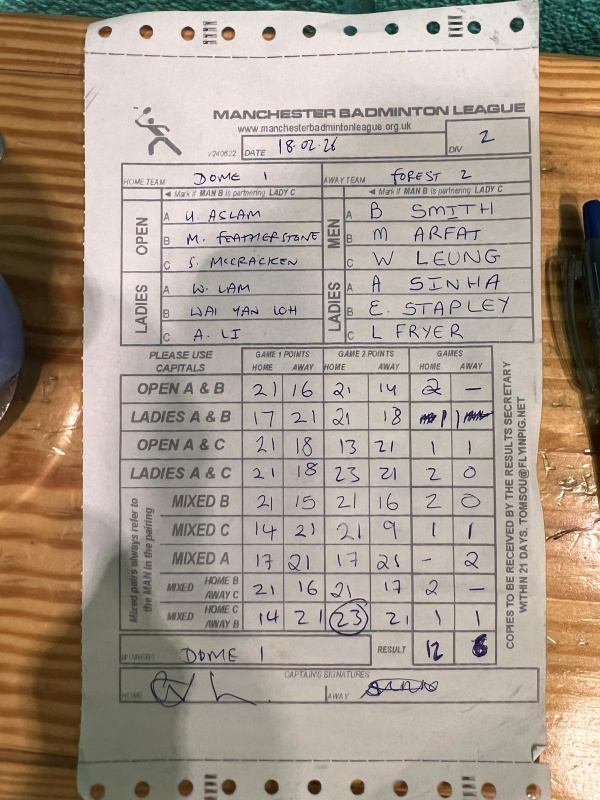 MANCHESTER BADMINTON LEAGUE
www.manchesterbadmintonleague.org.uk
V240622 DATE 18.02.26 DIV 2
HOME TEAM DOME 1 AWAY TEAM FOREST 2
◄ Mark if MAN B is partnering LADY C ◄ Mark if MAN B is partnering LADY C
OPEN A U. ASLAM MEN A B SMITH
B M. FEATHERSTONE B M ARFAT
C S. MCCRACKEN C W LEUNG
LADIES A W. LAM LADIES A A SINHA
B WAI YAN LOH B E. STAPLEY
C A. LI C L FRYER
PLEASE USE CAPITALS GAME 1 POINTS GAME 2 POINTS GAMES
HOME AWAY HOME AWAY HOME AWAY
OPEN A & B 21 16 21 14 2 –
LADIES A & B 17 21 21 18 1 1
OPEN A & C 21 18 13 21 1 1
LADIES A & C 21 18 23 21 2 0
Mixed pairs always refer to the MAN in the pairing
MIXED B 21 15 21 16 2 0
MIXED C 14 21 21 9 1 1
MIXED A 17 21 17 21 – 2
MIXED HOME B AWAY C 21 16 21 17 2 –
MIXED HOME C AWAY B 14 21 23 21 1 1
WINNERS DOME 1 RESULT 12 6
CAPTAINS SIGNATURES
HOME AWAY
COPIES TO BE RECEIVED BY THE RESULTS SECRETARY
WITHIN 21 DAYS. TOMSOU@FLYINPIG.NET